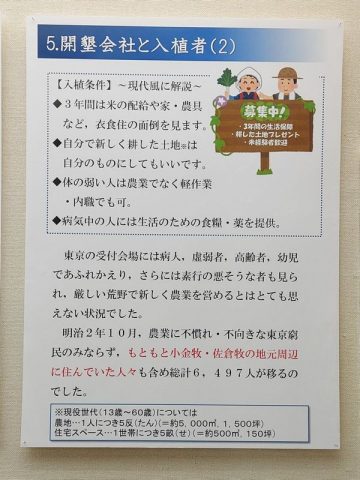 5.開墾会社と入植者(2)
【入植条件】~現代風に解説~
◆3年間は米の配給や家・農具
など,衣食住の面倒を見ます。
◆自分で新しく耕した土地※は
自分のものにしてもいいです。
◆体の弱い人は農業でなく軽作業
・内職でも可。
◆病気中の人には生活のための食糧・薬を提供。
募集中!
・3年間の生活保障
・耕した土地プレゼント
・未経験者歓迎
東京の受付会場には病人,虚弱者,高齢者,幼児
であふれかえり,さらには素行の悪そうな者も見ら
れ,厳しい荒野で新しく農業を営めるとはとても思
えない状況でした。
明治2年10月,農業に不慣れ・不向きな東京窮
民のみならず,もともと小金牧・佐倉牧の地元周辺
に住んでいた人々も含め総計6,497人が移るの
でした。
※現役世代(13歳~60歳)については
農地…1人につき5反(たん)(=約5,000㎡,1,500坪)
住宅スペース…1世帯につき5畝(せ)(=約500㎡,150坪)